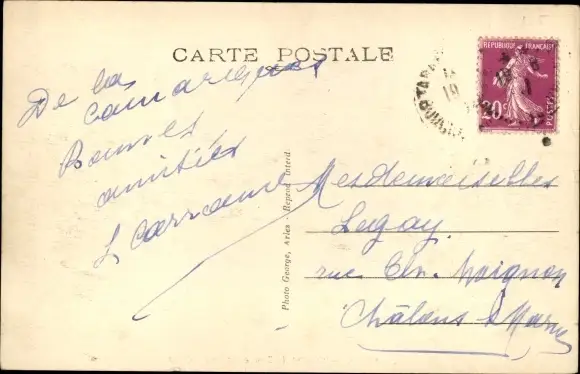 CARTE POSTALE
REPUBLIQUE FRANÇAISE
20c
POSTES
De la
camargue
Bonnes
amitiés
Photo George, Arles - Reprod. interd.
Mesdemoiselles
Legay
rue Ch.
Châlons s Marne